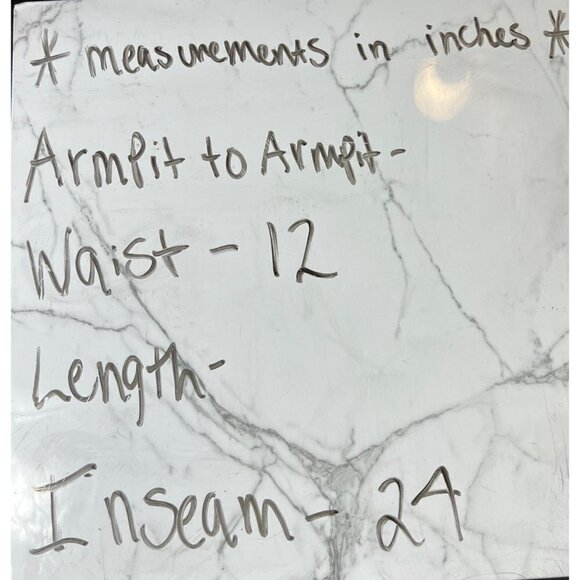 * measurements in inches *
Armpit to Armpit -
Waist - 12
Length -
Inseam - 24